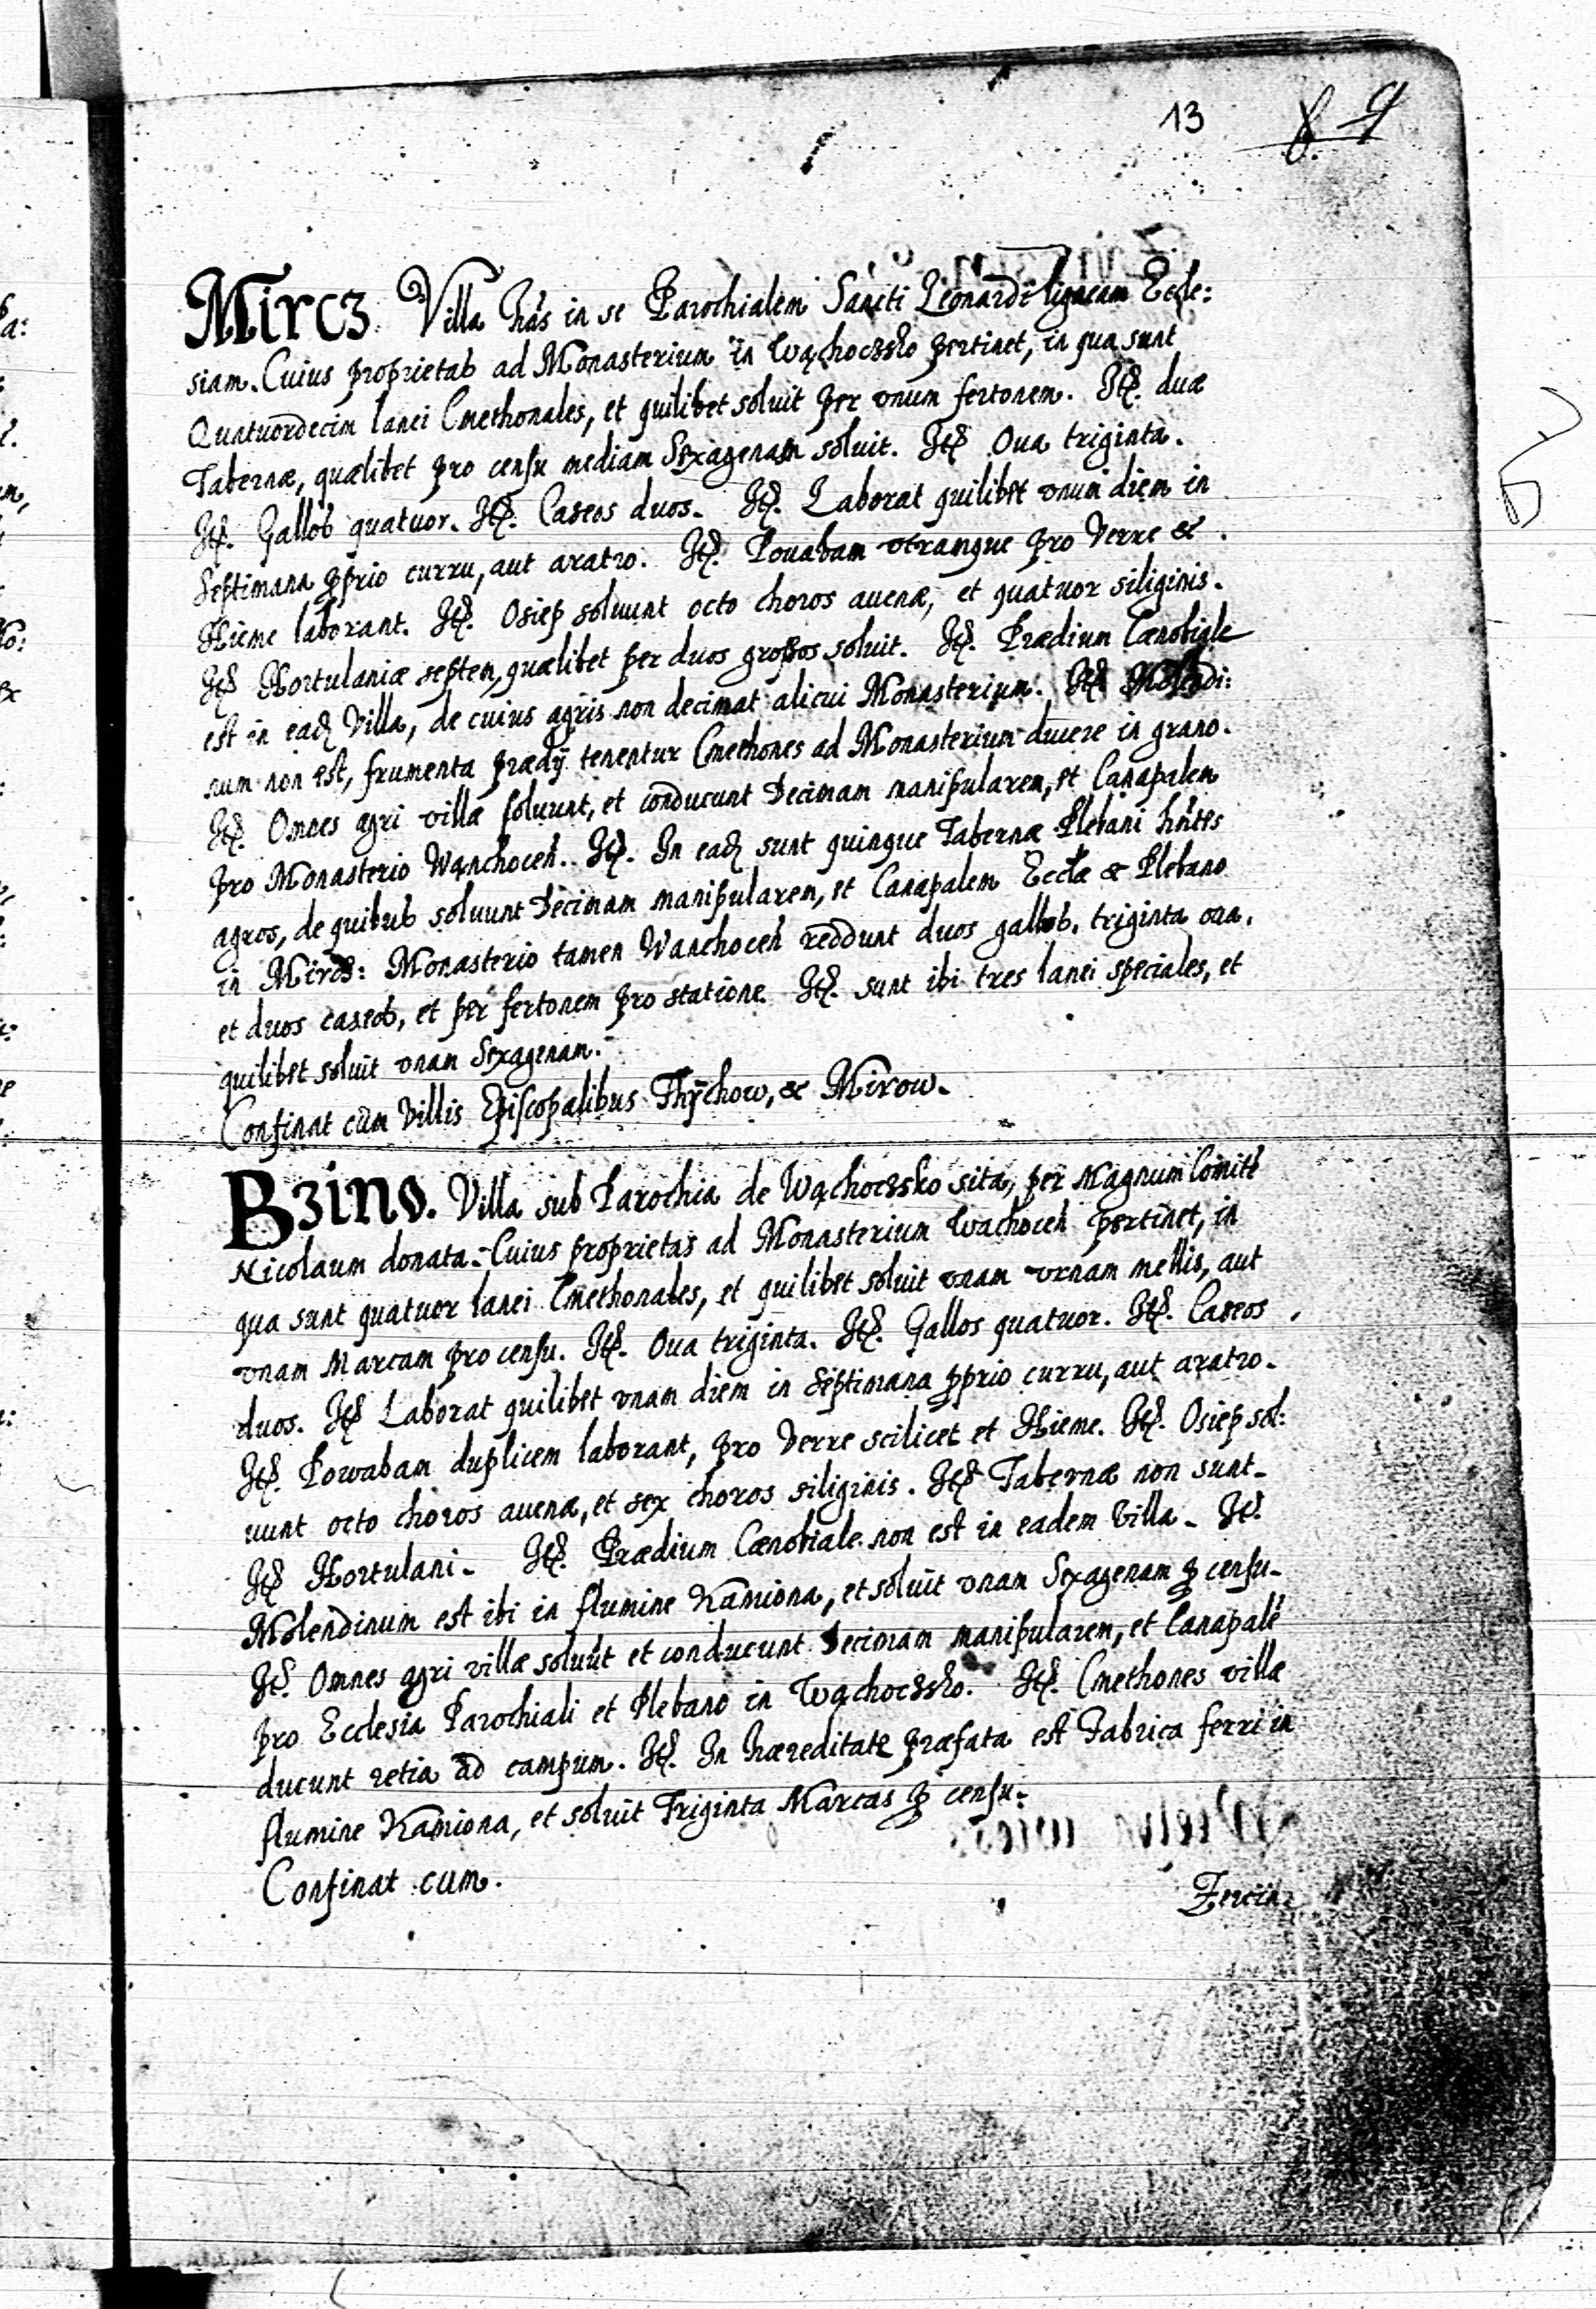 13
8. 9
Mircz. Villa hńs in se Parochialem Sancti Leonardi ligneam Eccle:
siam. Cuius proprietas ad Monasterium in Wąchoczsko pertinet, in qua sunt
Quatuordecim lanei Cmethonales, et quilibet soluit per vnum fertonem. Itẽ. duæ
Tabernæ, quælibet pro censu mediam Sexagenam soluit. Itẽ Oua triginta.
Itẽ. Gallos quatuor. Itẽ. Caseos duos. Itẽ. Laborat quilibet vnum diem in
Septimana ꝓprio curru, aut aratro. Itẽ. Pouabam vtramque pro Verre &
Hieme laborant. Itẽ. Osiep soluunt octo choros auenæ, et quatuor siliginis.
Itẽ Hortulaniæ septem, quælibet per duos grossos soluit. Itẽ. Prædium Cænobiale
est in eadẽ Villa, de cuius agris non decimat alicui Monasterium. Itẽ Molendi:
num non est, frumenta prædÿ tenentur Cmethones ad Monasterium ducere in grano.
Itẽ. Omnes agri villæ soluunt, et conducunt Decimam manipularem, et Canapalem
pro Monasterio Wąnchoceń. Itẽ. In eadẽ sunt quinque Tabernæ Plebani hńtes
agros, de quibus soluunt Decimam manipularem, et Canapalem Eccłæ & Plebano
in Mircz: Monasterio tamen Wanchoceń reddunt duos gallos, triginta oua,
et duos caseos, et per fertonem pro statione. Itẽ. sunt ibi tres lanei speciales, et
quilibet soluit vnam Sexagenam.
Confinat cum Villis Episcopalibus Thÿchow, & Mirow.
Bzino. Villa sub Parochia de Wąchoczsko sita, per Magnum Comitẽ
Nicolaum donata. Cuius proprietas ad Monasterium Wachoceń pertinet, in
qua sunt quatuor lanei Cmethonales, et quilibet soluit vnam vrnam mellis, aut
vnam Marcam pro censu. Itẽ. Oua triginta. Itẽ. Gallos quatuor. Itẽ. Caseos
duos. Itẽ Laborat quilibet vnam diem in Septimana ꝓprio curru, aut aratro.
Itẽ. Powabam duplicem laborant, pro Verre scilicet et Hieme. Itẽ. Osiep sol:
uunt octo choros auenæ, et sex choros siliginis. Itẽ Tabernæ non sunt.
Itẽ Hortulani. Itẽ. Prædium Cænobiale non est in eadem Villa. Itẽ.
Molendinum est ibi in flumine Kamiona, et soluit vnam Sexagenam ꝓ censu.
Itẽ. Omnes agri villæ soluũt et conducunt Decimam manipularem, et Canapalẽ
pro Ecclesia Parochiali et Plebano in Wąchoczsko. Itẽ. Cmethones villæ
ducunt retia ad campum. Itẽ. In hæreditate præfata est Fabrica ferri in
flumine Kamiona, et soluit Triginta Marcas ꝓ censu.
Confinat cum.